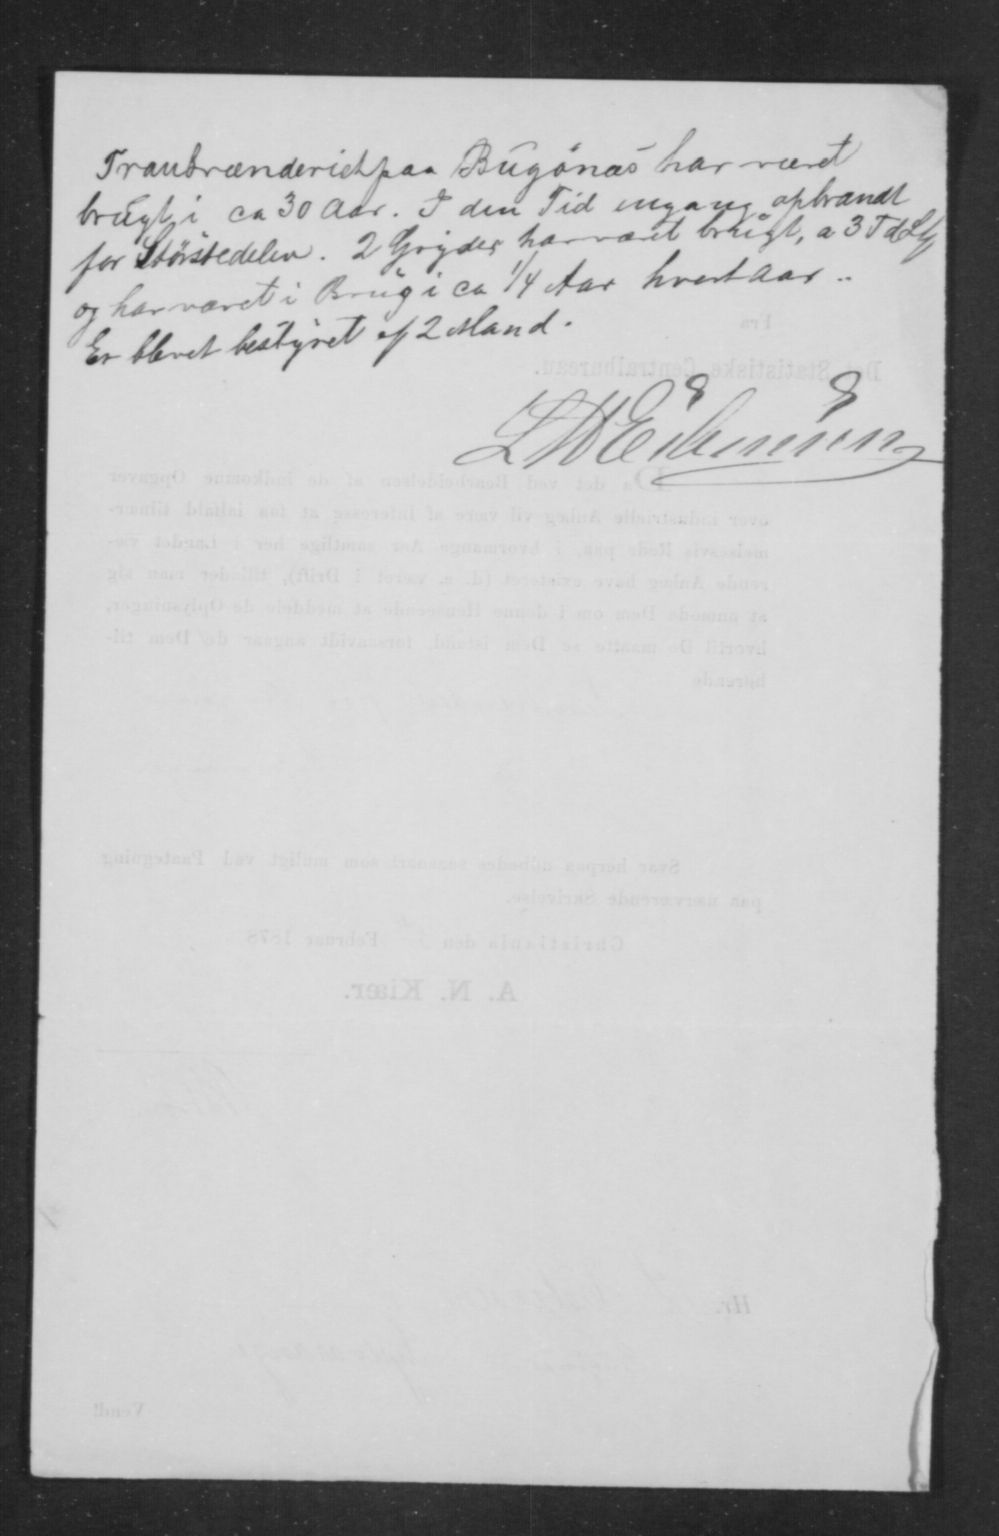 Tranbrænderiet paa Bugönæs har været
brugt i ca 30 Aar. I den Tid engang opbrandt
for Störstedelen. 2 Gryder har været brugt, a 3 Td
og har været i Brug i ca 1/4 Aar hvert Aar ..
Er blevet bestyret af 2 Mand.
Fra
Det Statistiske Centralbureau.
Da det ved Bearbeidelsen af de indkomne Opgaver
over industrielle Anlæg vil være af Interesse at faa ialfald tilnær-
melsesvis Rede paa, i hvormange Aar samtlige her i Landet væ-
rende Anlæg have existeret (d. e. været i Drift), tillader man sig
at anmode Dem om i denne Henseende at meddele de Oplysninger,
hvortil De maatte se Dem istand, forsaavidt angaar de Dem til-
hørende
Svar herpaa udbedes saasnart som muligt ved Paategning
paa nærværende Skrivelse.
Christiania den Februar 1878
A. N. Kiær.
Hr.
Vend!